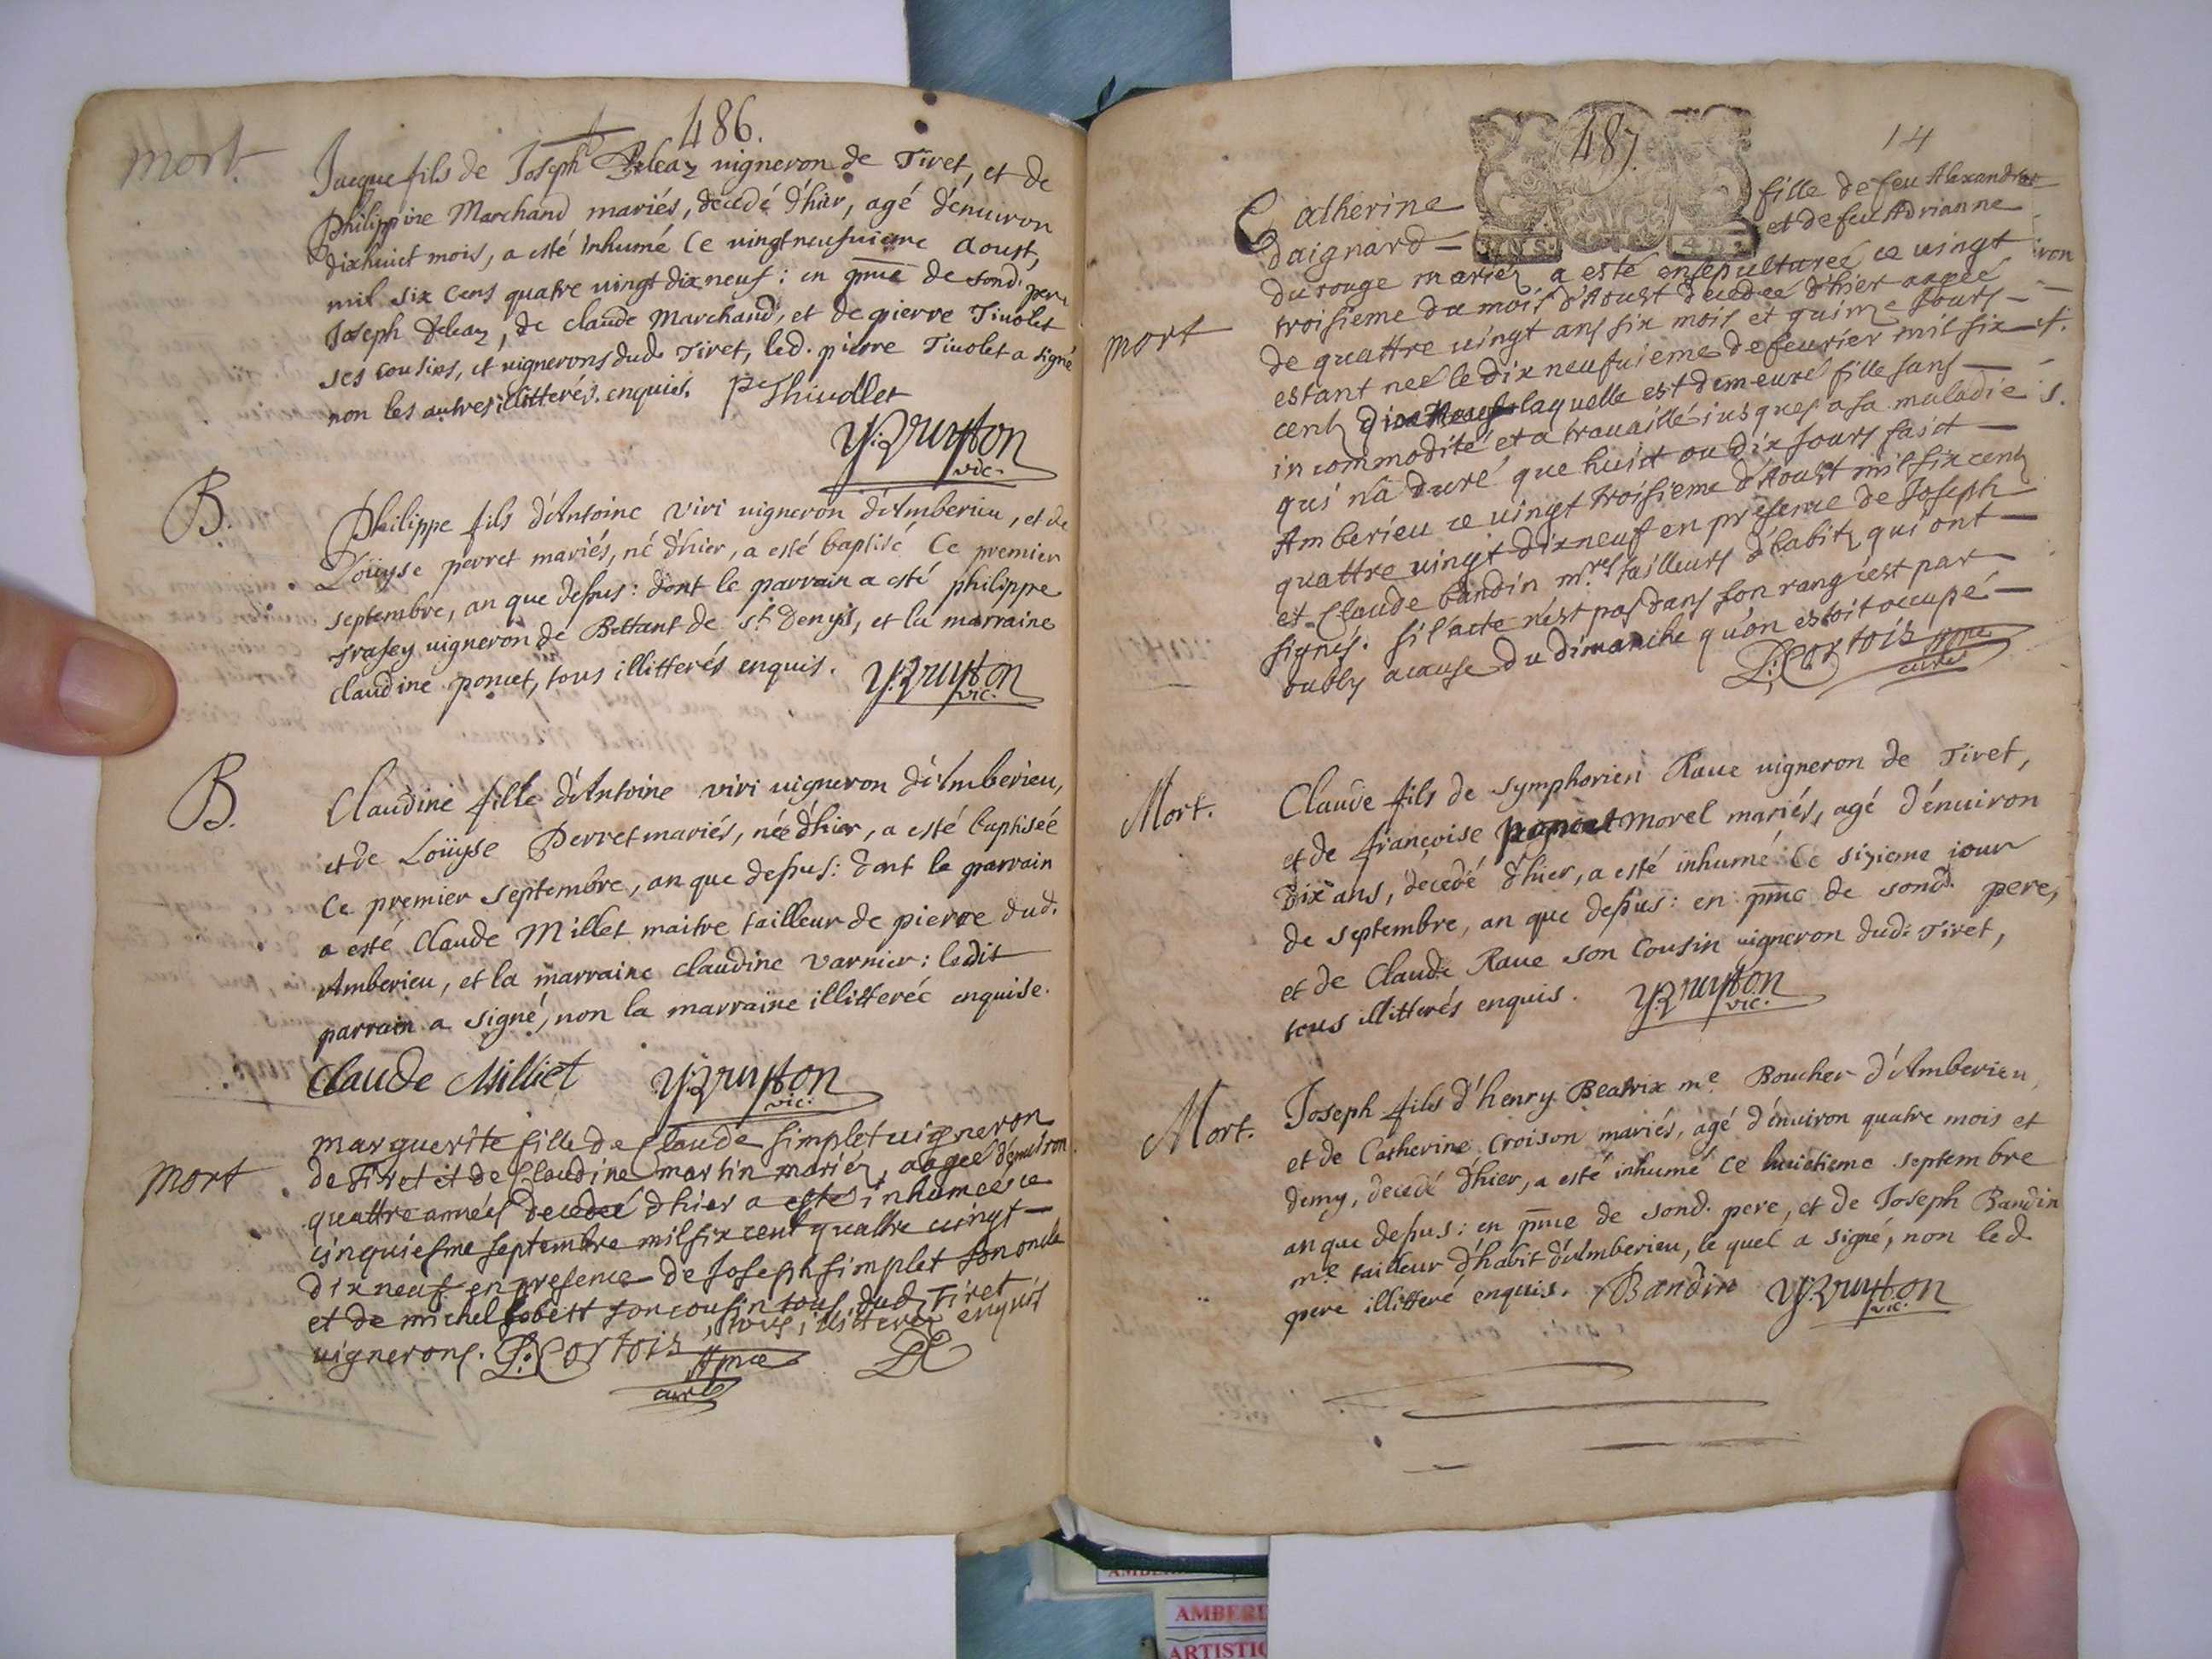 486.
mort.
Jacque fils de Joseph Beleaz vigneron de Tiret, et de
Philippine Marchand mariés, decedé d'hier, agé d'énuiron
dixhuict mois, a esté inhumé Ce vingtneufuieme Aoust,
mil six Cens quatre vingt dixneuf: en pnce de sond. pere
Joseph Beleaz, de claude Marchand, et de pierre Tiuolet
ses cousins, et vignerons dud. Tiret, led. pierre Tiuolet a signé
non les autres illitterés. enquis. Pe Thiuollet
vic.
B.
Philippe fils d'Antoine viri vigneron d'Amberieu, et de
Loüyse perret mariés, né d'hier, a esté baptisé Ce premier
septembre, an que dessus: dont le parrain a esté philippe
trafey vigneron de Bettant de st. denys, et la marraine
Claudine poncet, tous illitterés enquis.
vic.
B.
Claudine fille d'Antoine viri vigneron d'Amberieu,
et de Loüyse Perret mariés, née d'hier, a esté baptiseé
Ce premier septembre, an que dessus: dont le parrain
a esté Claude Millet maitre tailleur de pierre dud.
Amberieu, et la marraine claudine varnier: ledit
parrain a signé, non la marraine illitteréé enquise.
Claude Milliet
vic.
mort
marguerite fille de Claude simplet uigneron
de Tiret et de Claudine martin mariez, aageé d'enuiron
quattre anneés decedeé dhier a esteé inhumeé ce
cinquiesme septembre mil six cent quattre vingt
dixneuf en presence de Joseph simplet son oncle
et de michel son cousin tous dud. Tiret
vignerons. , tous illitterez enquis
D. Cortois pnce DC
curé
487.
14
Catherine fille de feu Alexandre
daignard et de feu Adrianne
du rouge mariez a esté ensepultureé ce vingt
mort
troisieme du mois d'Aoust decedeé d'hier aageé
de quattre vingt ans six mois et quinze Jours
estant neé le dixneufuieme de feurier mil six
centz dixneuf laquelle est demeuré fille sans
incommodité et a trauaillé iusques a sa maladie
qui n'a duré que huict ou dix Jours faict
Amberieu ce vingt troisieme d'Aoust mil six centz
quattre vingt dixneuf en presence de Joseph
et Claude bandin mres tailleurs d'habitz qui ont
signés. si l'acte n'est pas dans son rang c'est par
oubly a cause du dimanche qu'on estoit occupé
D. Cortois pnce
curé
Mort.
Claude fils de symphorien Raue vigneron de Tiret,
et de françoise morel mariés, agé d'énuiron
dix ans, decedé d'hier, a esté inhumé Ce sixieme iour
de septembre, an que dessus: en pnce de sond. pere,
et de Claude Raue son Cousin vigneron dud. Tiret,
tous illitterés enquis.
vic.
Mort.
Joseph fils d'henry Beatrix me. Boucher d'Amberieu,
et de Catherine Croison mariés, agé d'énuiron quatre mois et
demy, decedé d'hier, a esté inhumé Ce huictieme septembre
an que dessus: en pnce de sond. pere, et de Joseph Bandin
me. tailleur d'habit d'Amberieu, le quel a signé, non led.
pere illitteré enquis. J Bandin
vic.
AMBE
ARTISTI